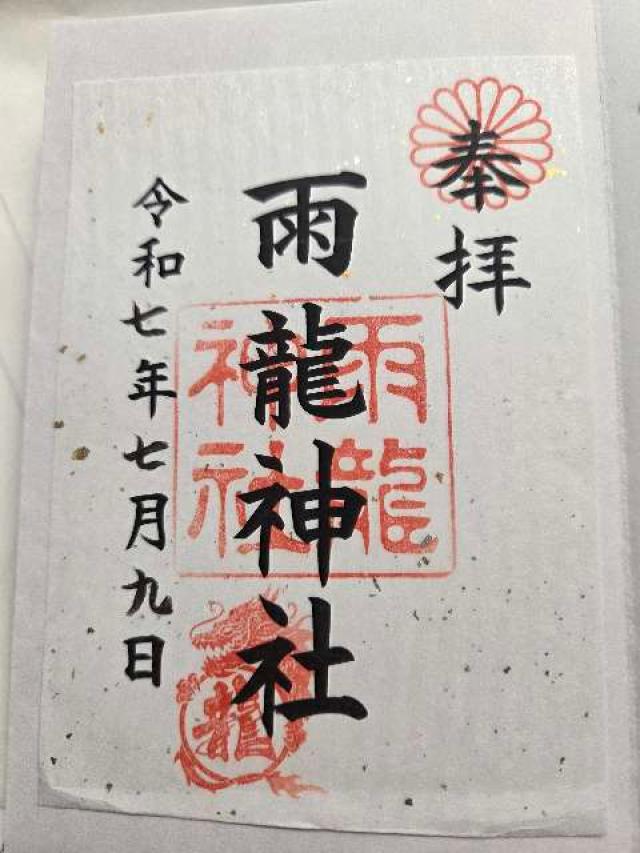 奉拝
雨龍神社
雨龍
神社
龍
令和七年七月九日